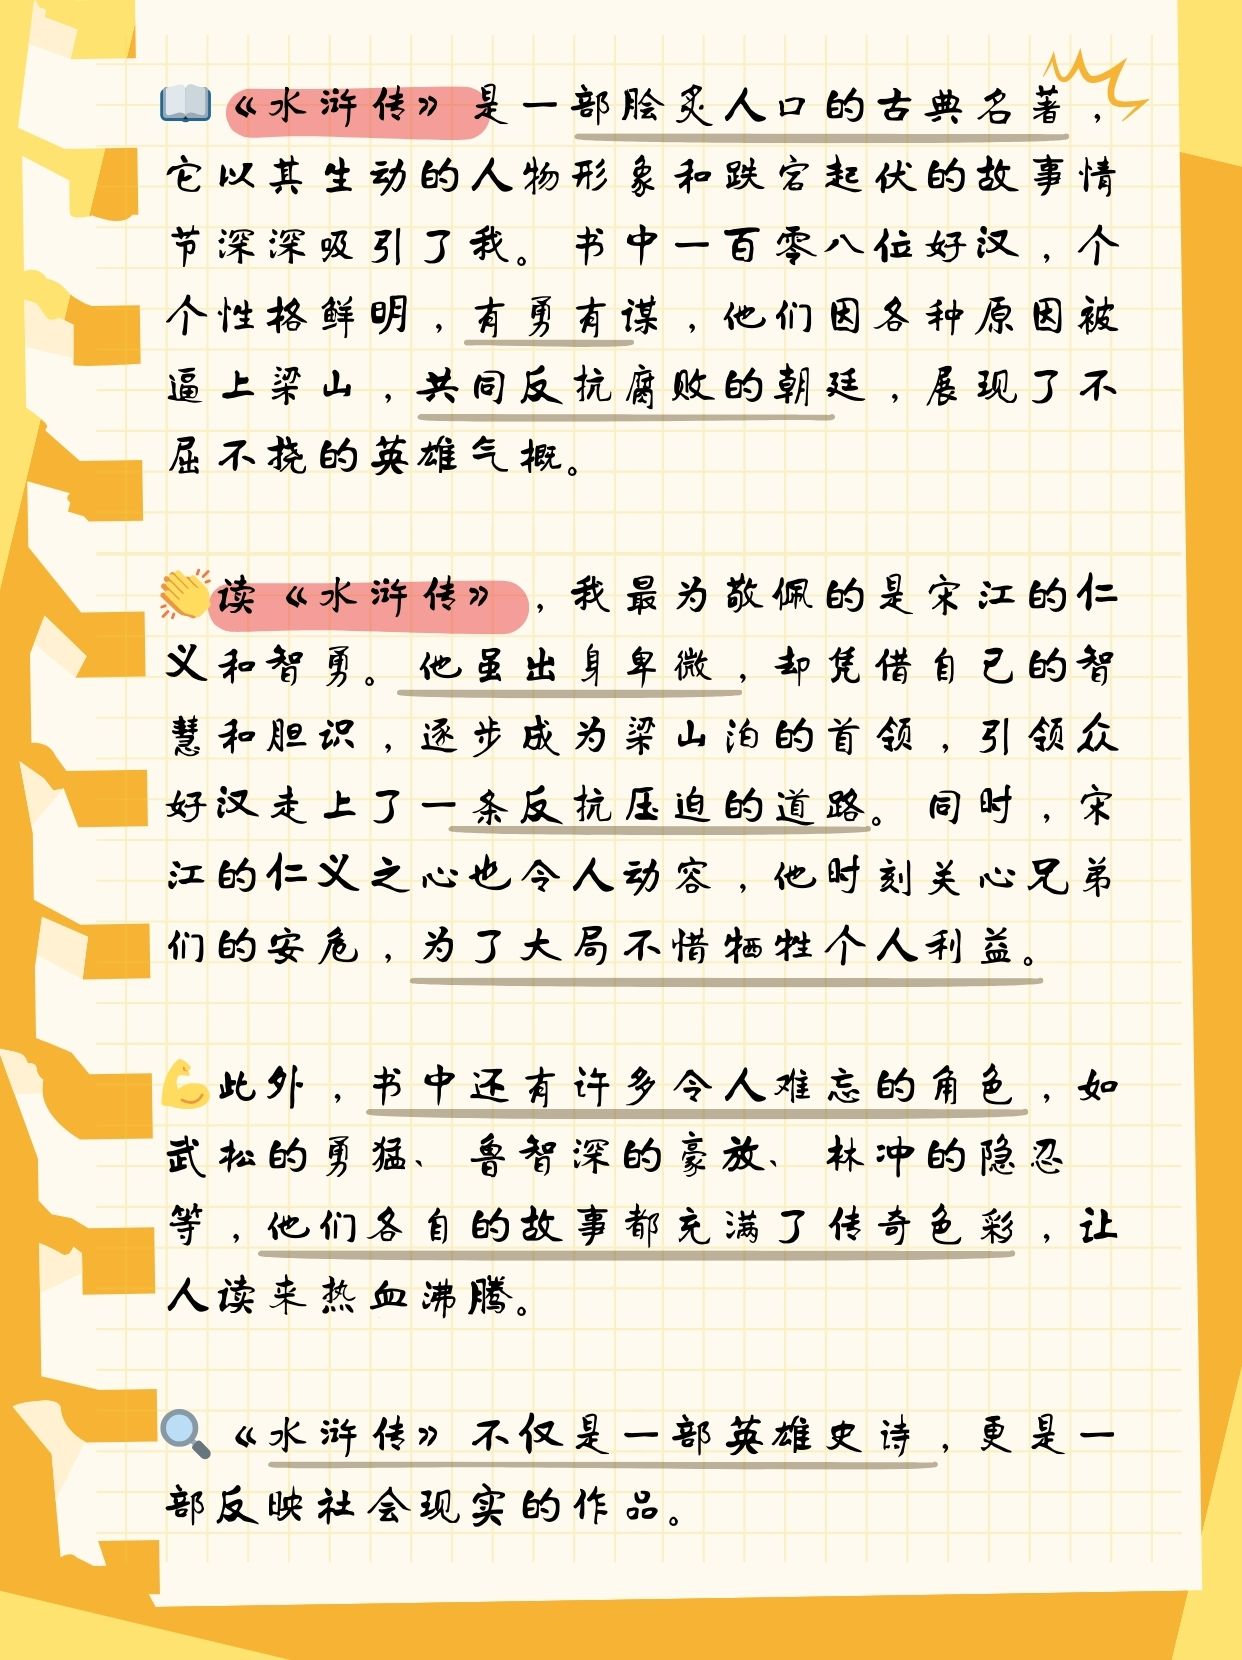 《水浒传》是一部脍炙人口的古典名著，
它以其生动的人物形象和跌宕起伏的故事情
节深深吸引了我。书中一百零八位好汉，个
个性格鲜明，有勇有谋，他们因各种原因被
逼上梁山，共同反抗腐败的朝廷，展现了不
屈不挠的英雄气概。
读《水浒传》，我最为敬佩的是宋江的仁
义和智勇。他虽出身卑微，却凭借自己的智
慧和胆识，逐步成为梁山泊的首领，引领众
好汉走上了一条反抗压迫的道路。同时，宋
江的仁义之心也令人动容，他时刻关心兄弟
们的安危，为了大局不惜牺牲个人利益。
此外，书中还有许多令人难忘的角色，如
武松的勇猛、鲁智深的豪放、林冲的隐忍
等，他们各自的故事都充满了传奇色彩，让
人读来热血沸腾。
《水浒传》不仅是一部英雄史诗，更是一
部反映社会现实的作品。